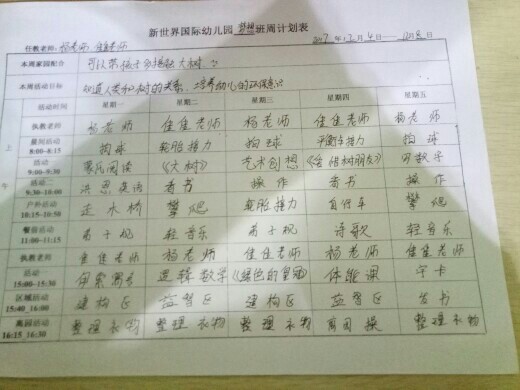 新世界国际幼儿园 梦想 班周计划表
任教老师: 杨老师 佳佳老师 2017年12月4日——12月8日
本周家园配合 可以带孩子多接触大树
本周活动目标 知道人类和树的关系,培养幼儿的环保意识
活动时间 星期一 星期二 星期三 星期四 星期五
上午
执教老师 杨老师 佳佳老师 杨老师 佳佳老师 杨老师
晨间活动 8:00-8:15 拍球 轮胎接力 拍球 平衡车接力 拍球
活动一 9:00-9:30 蒙氏阅读 《大树》 艺术创想 《会 树朋友》
活动二 9:30-10:00 洪恩英语 看书 操作 看书 操作
户外活动 10:15-10:50 走木桥 攀爬 轮胎接力 自行车 攀爬
餐前活动 11:00-11:15 弟子规 轻音乐 弟子规 诗歌 轻音乐
执教老师 佳佳老师 杨老师 佳佳老师 杨老师 佳佳老师
活动 15:00-15:30 逻辑数学 《绿色的皇冠》 体能课 字卡
区域活动 15:40 16:00 建构区 益智区 建构区 益智区 看书
离园活动 16:15 16:30 整理衣物 整理衣物 整理衣物 离园操 整理衣物